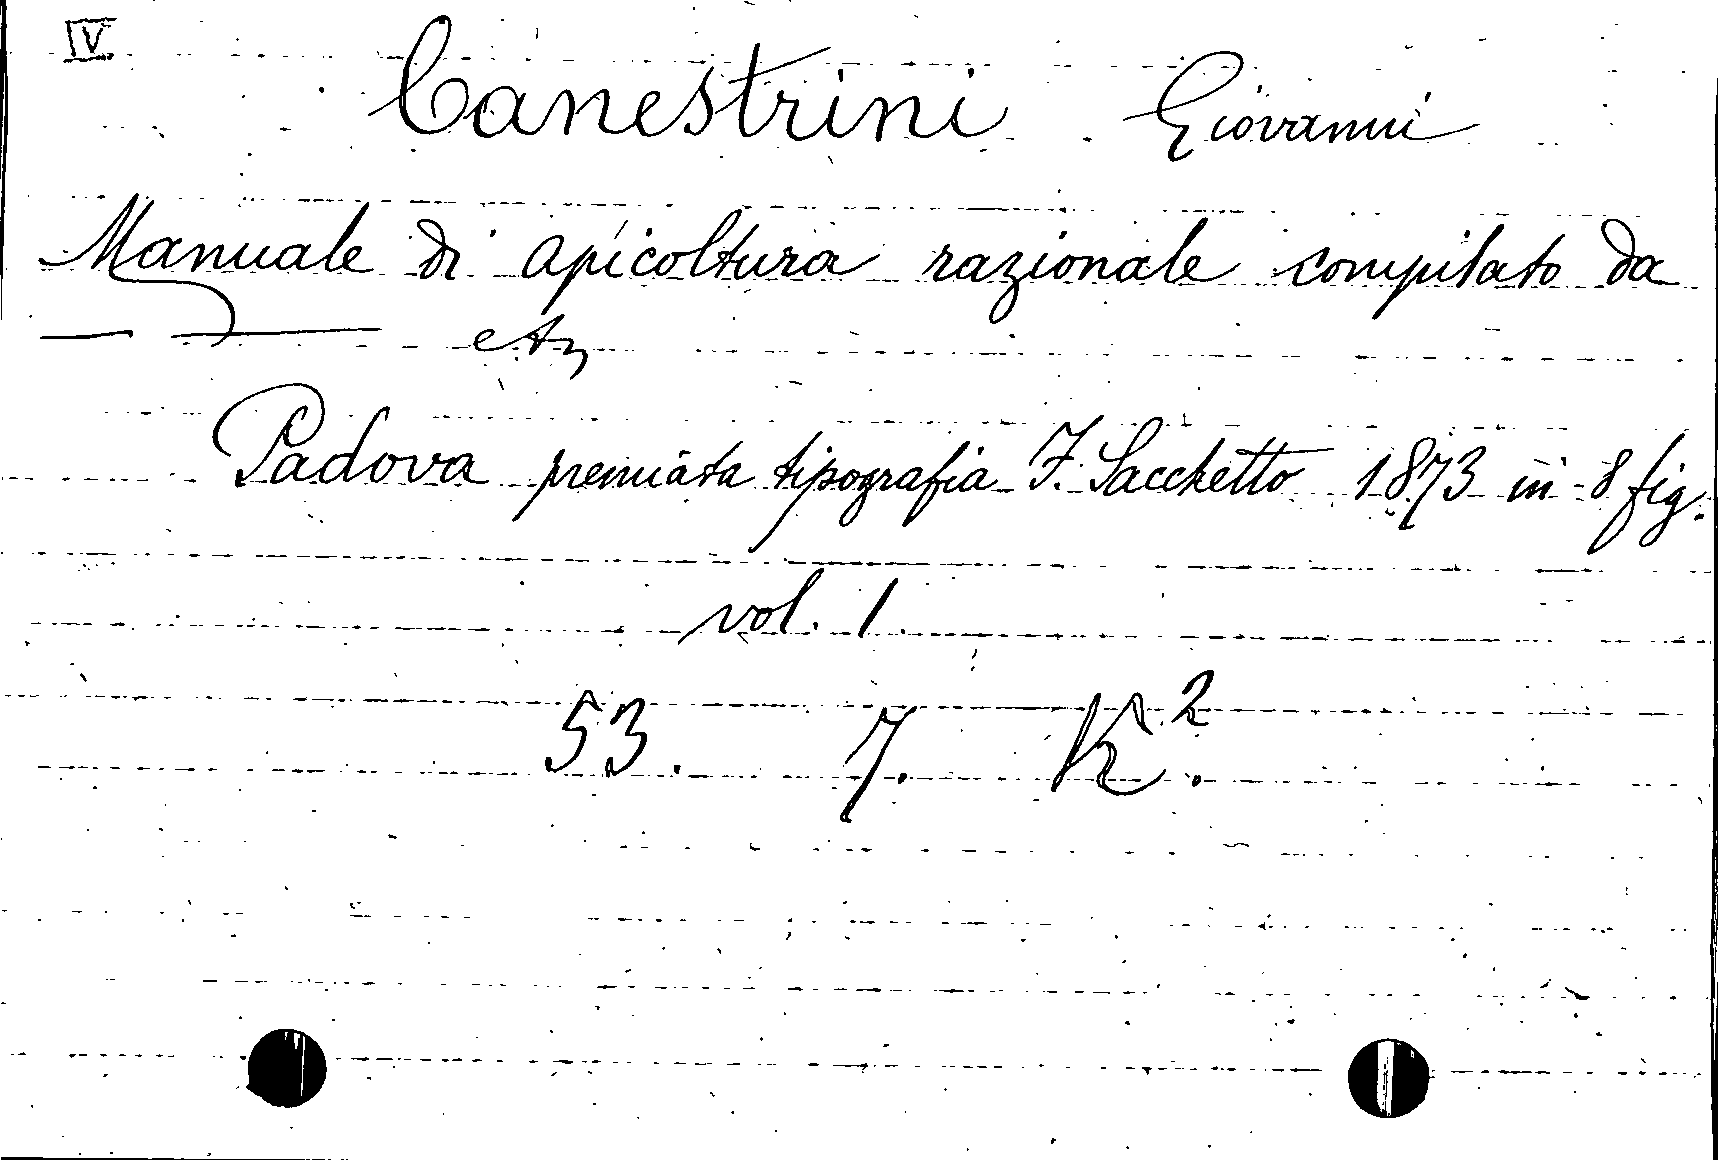 IV
Canestrini Giovanni
Manuale di apicoltura razionale compilato da
— — etz
Padova premiata tipografia F. Sacchetto 1873 in 8 fig.
vol. 1.
53. 7. K².